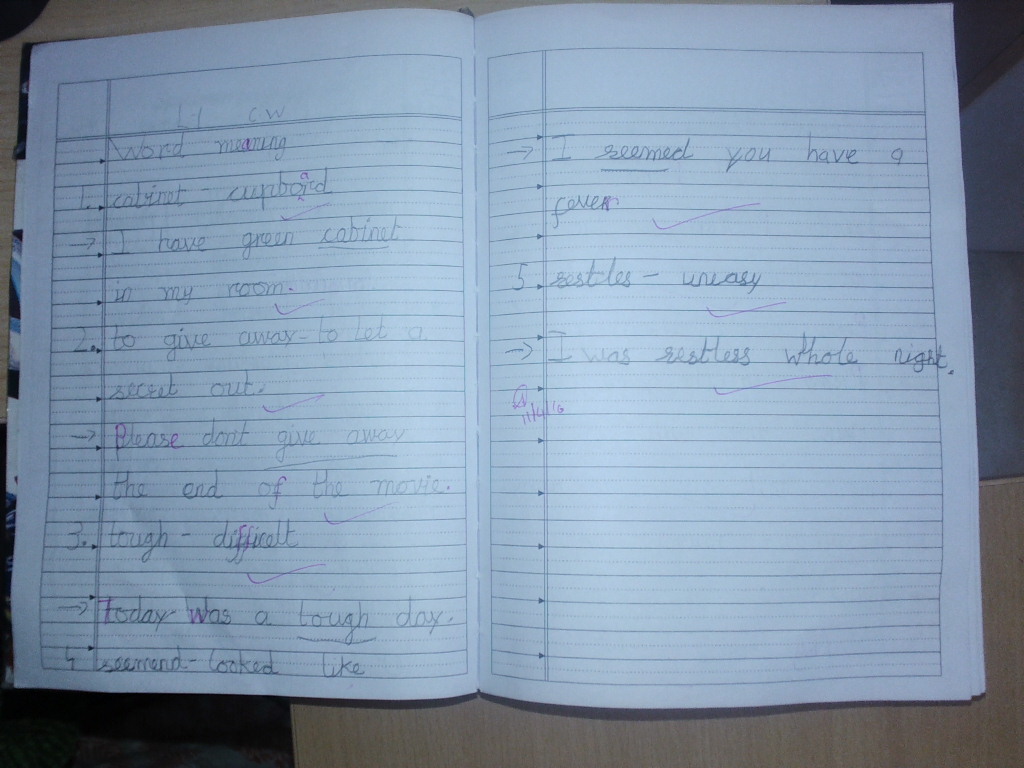 L1 CW
Word meaning
1. cabinet - cupboard
→ I have green cabinet
in my room.
2. to give away - to let a
secret out.
→ Please don't give away
the end of the movie.
3. tough - difficelt
→ Today was a tough day.
4 seemend - looked like
→ I seemed you have a
fever
5 restles - uneasy
→ I was restless whole night.
11/4/16